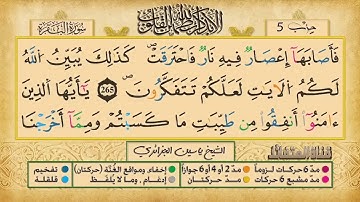 حزب 5
ألا بذكر الله تطمئن القلوب
سورة البقرة
فَأَصَابَهَآ إِعْصَارٌ فِيهِ نَارٌ فَاحْتَرَقَتْ كَذَٰلِكَ يُبَيِّنُ اللَّهُ
لَكُمُ الْآيَٰتِ لَعَلَّكُمْ تَتَفَكَّرُونَ 265 يَٰٓأَيُّهَا الَّذِينَ
ءَامَنُوٓا أَنفِقُوا مِن طَيِّبَٰتِ مَا كَسَبْتُمْ وَمِمَّآ أَخْرَجْنَا
الشيخ ياسين الجزائري
مدّ 6 حركات لزوماً مدّ 2 أو 4 أو 6 جوازاً إخفاء، ومواقع الغُنَّة (حركتان) تفخيم
مدّ مشبع 6 حركات مدّ حركتان إدغام، وما لا يُلفَظ قلقلة